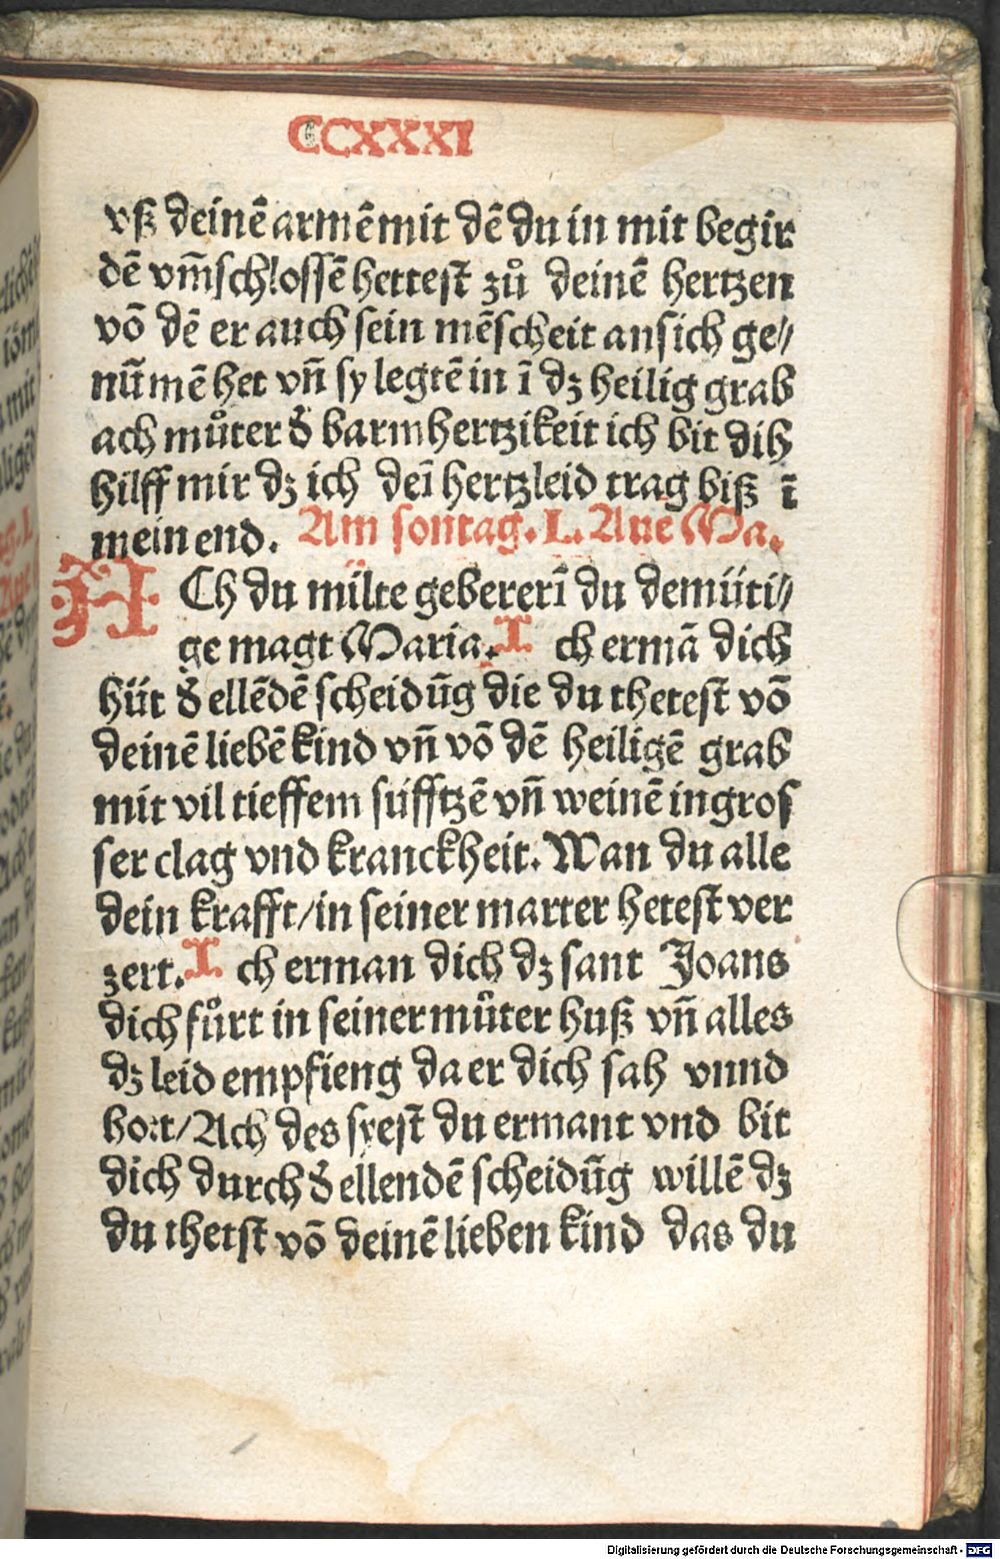 CCXXXI
vß deinē armē mit dē du in mit begir
dē vm̄schlossē hettest zů deinē hertzen
vō dē er auch sein mēscheit an sich ge⸗
nūmē het vn̄ sy legtē in ī dz heilig grab
ach můter d̕ barmhertzikeit ich bit dih
hilff mir dz ich deī hertzleid trag biß ī
mein end. Am sontag. L. Aue Ma.
ACh du milte gebererī du demüti⸗
ge magt Maria. Ich ermā dich
hüt d̕ ellēdē scheidūg die du thetest vō
deinē liebē kind vn̄ vō dē heiligē grab
mit vil tieffem süfftzē vn̄ weinē in gros
ser clag vnd kranckheit. Wan du alle
dein krafft/in seiner marter hetest ver
zert. Ich erman dich dz sant Joans
dich fůrt in seiner můter huß vn̄ alles
dz leid empfieng da er dich sah vnnd
hort/Ach des syest du ermant vnd bit
dich durch d̕ ellendē scheidūg willē dz
du thetst vō deinē lieben kind das du
Digitalisierung gefördert durch die Deutsche Forschungsgemeinschaft - DFG